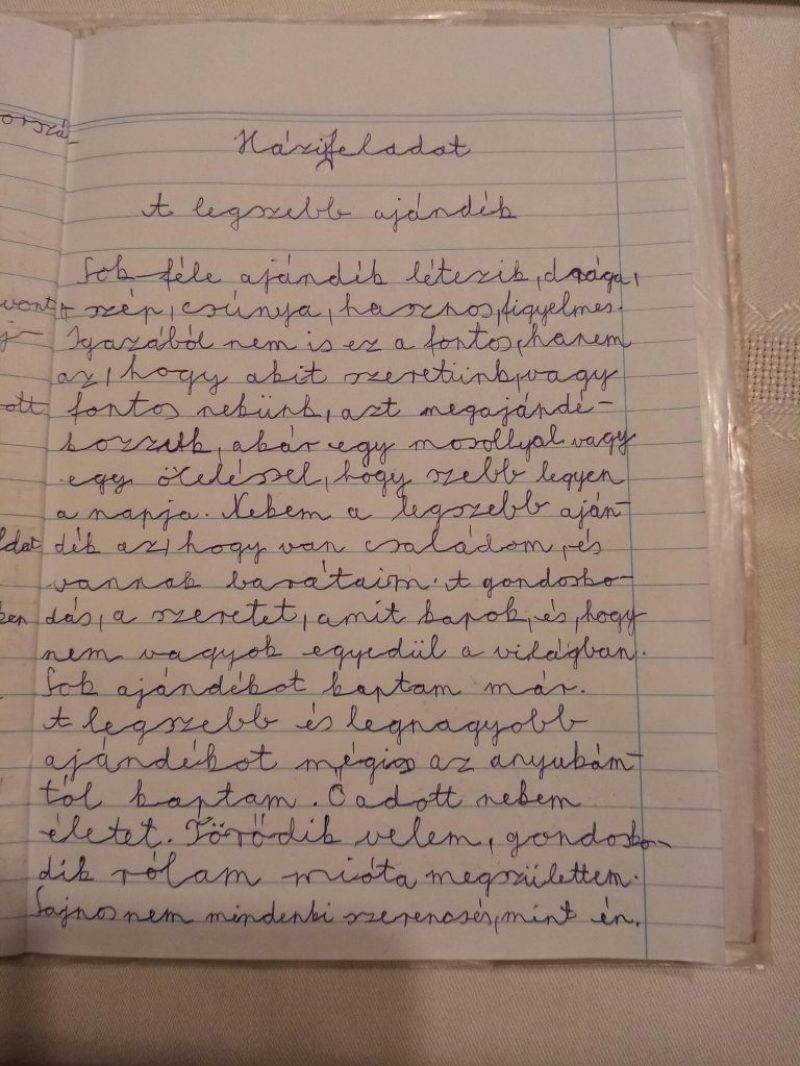 orszá-
Házifeladat
A legszebb ajándék
Sok féle ajándék létezik, drága,
szép, csúnya, hasznos, figyelmes.
Igazából nem is ez a fontos, hanem
az, hogy akit szeretünk, vagy
ott
fontos nekünk, azt megajándé-
kozzuk, akár egy mosollyal vagy
egy öleléssel, hogy szebb legyen
a napja. Nekem a legszebb aján-
dék az, hogy van családom, és
vannak barátaim. A gondosko-
dás, a szeretet, amit kapok, és, hogy
nem vagyok egyedül a világban.
Sok ajándékot kaptam már.
A legszebb és legnagyobb
ajándékot mégis az anyukám-
tól kaptam. Ő adott nekem
életet. Törődik velem, gondosko-
dik rólam mióta megszülettem.
Sajnos nem mindenki szerencsés, mint én.